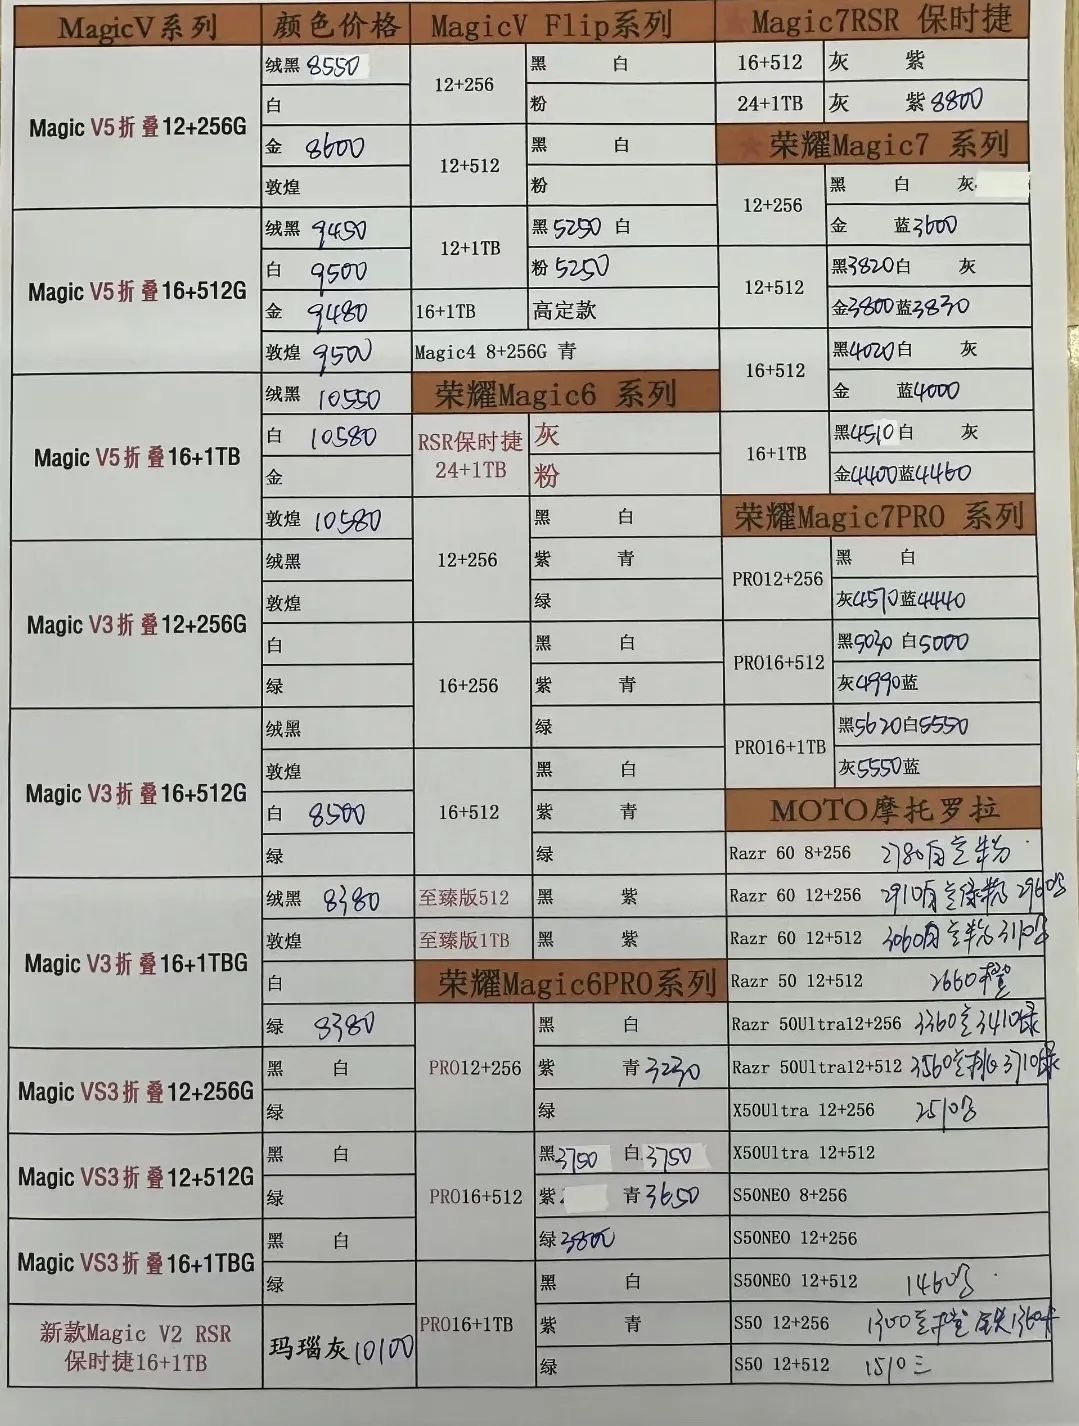 MagicV系列 颜色价格
Magic V5折叠12+256G
绒黑 8550
白
金 8600
敦煌
Magic V5折叠16+512G
绒黑 9450
白 9500
金 9480
敦煌 9500
Magic V5折叠16+1TB
绒黑 10550
白 10580
金
敦煌 10580
Magic V3折叠12+256G
绒黑
敦煌
白
绿
Magic V3折叠16+512G
绒黑
敦煌
白 8500
绿
Magic V3折叠16+1TBG
绒黑 8380
敦煌
白
绿 8380
Magic VS3折叠12+256G
黑 白
绿
Magic VS3折叠12+512G
黑 白
绿
Magic VS3折叠16+1TBG
黑 白
绿
新款Magic V2 RSR
保时捷16+1TB
玛瑙灰10100
MagicV Flip系列
12+256
黑 白
粉
12+512
黑 白
粉
12+1TB
黑5250 白
粉5250
16+1TB 高定款
Magic4 8+256G 青
荣耀Magic6 系列
RSR保时捷
24+1TB
灰
粉
12+256
黑 白
紫 青
绿
16+256
黑 白
紫 青
绿
16+512
黑 白
紫 青
绿
至臻版512 黑 紫
至臻版1TB 黑 紫
荣耀Magic6PRO系列
PRO12+256
黑 白
紫 青3230
绿
PRO16+512
黑3750 白3750
紫 青3650
绿3800
PRO16+1TB
黑 白
紫 青
绿
Magic7RSR 保时捷
16+512 灰 紫
24+1TB 灰 紫8800
荣耀Magic7 系列
12+256
黑 白 灰
金 蓝3600
12+512
黑3820白 灰
金3800蓝3830
16+512
黑4020白 灰
金 蓝4000
16+1TB
黑4510白 灰
金4400蓝4460
荣耀Magic7PRO 系列
PRO12+256
黑 白
灰4570蓝4440
PRO16+512
黑5030 白5000
灰4990蓝
PRO16+1TB
黑5620白5550
灰5550蓝
MOTO摩托罗拉
Razr 60 8+256 2780
Razr 60 12+256 2910
Razr 60 12+512 3060
Razr 50 12+512 2660
Razr 50Ultra12+256 3360 3410绿
Razr 50Ultra12+512 3560 3710绿
X50Ultra 12+256 2510
X50Ultra 12+512
S50NEO 8+256
S50NEO 12+256
S50NEO 12+512 1460
S50 12+256 1300
S50 12+512 1510三